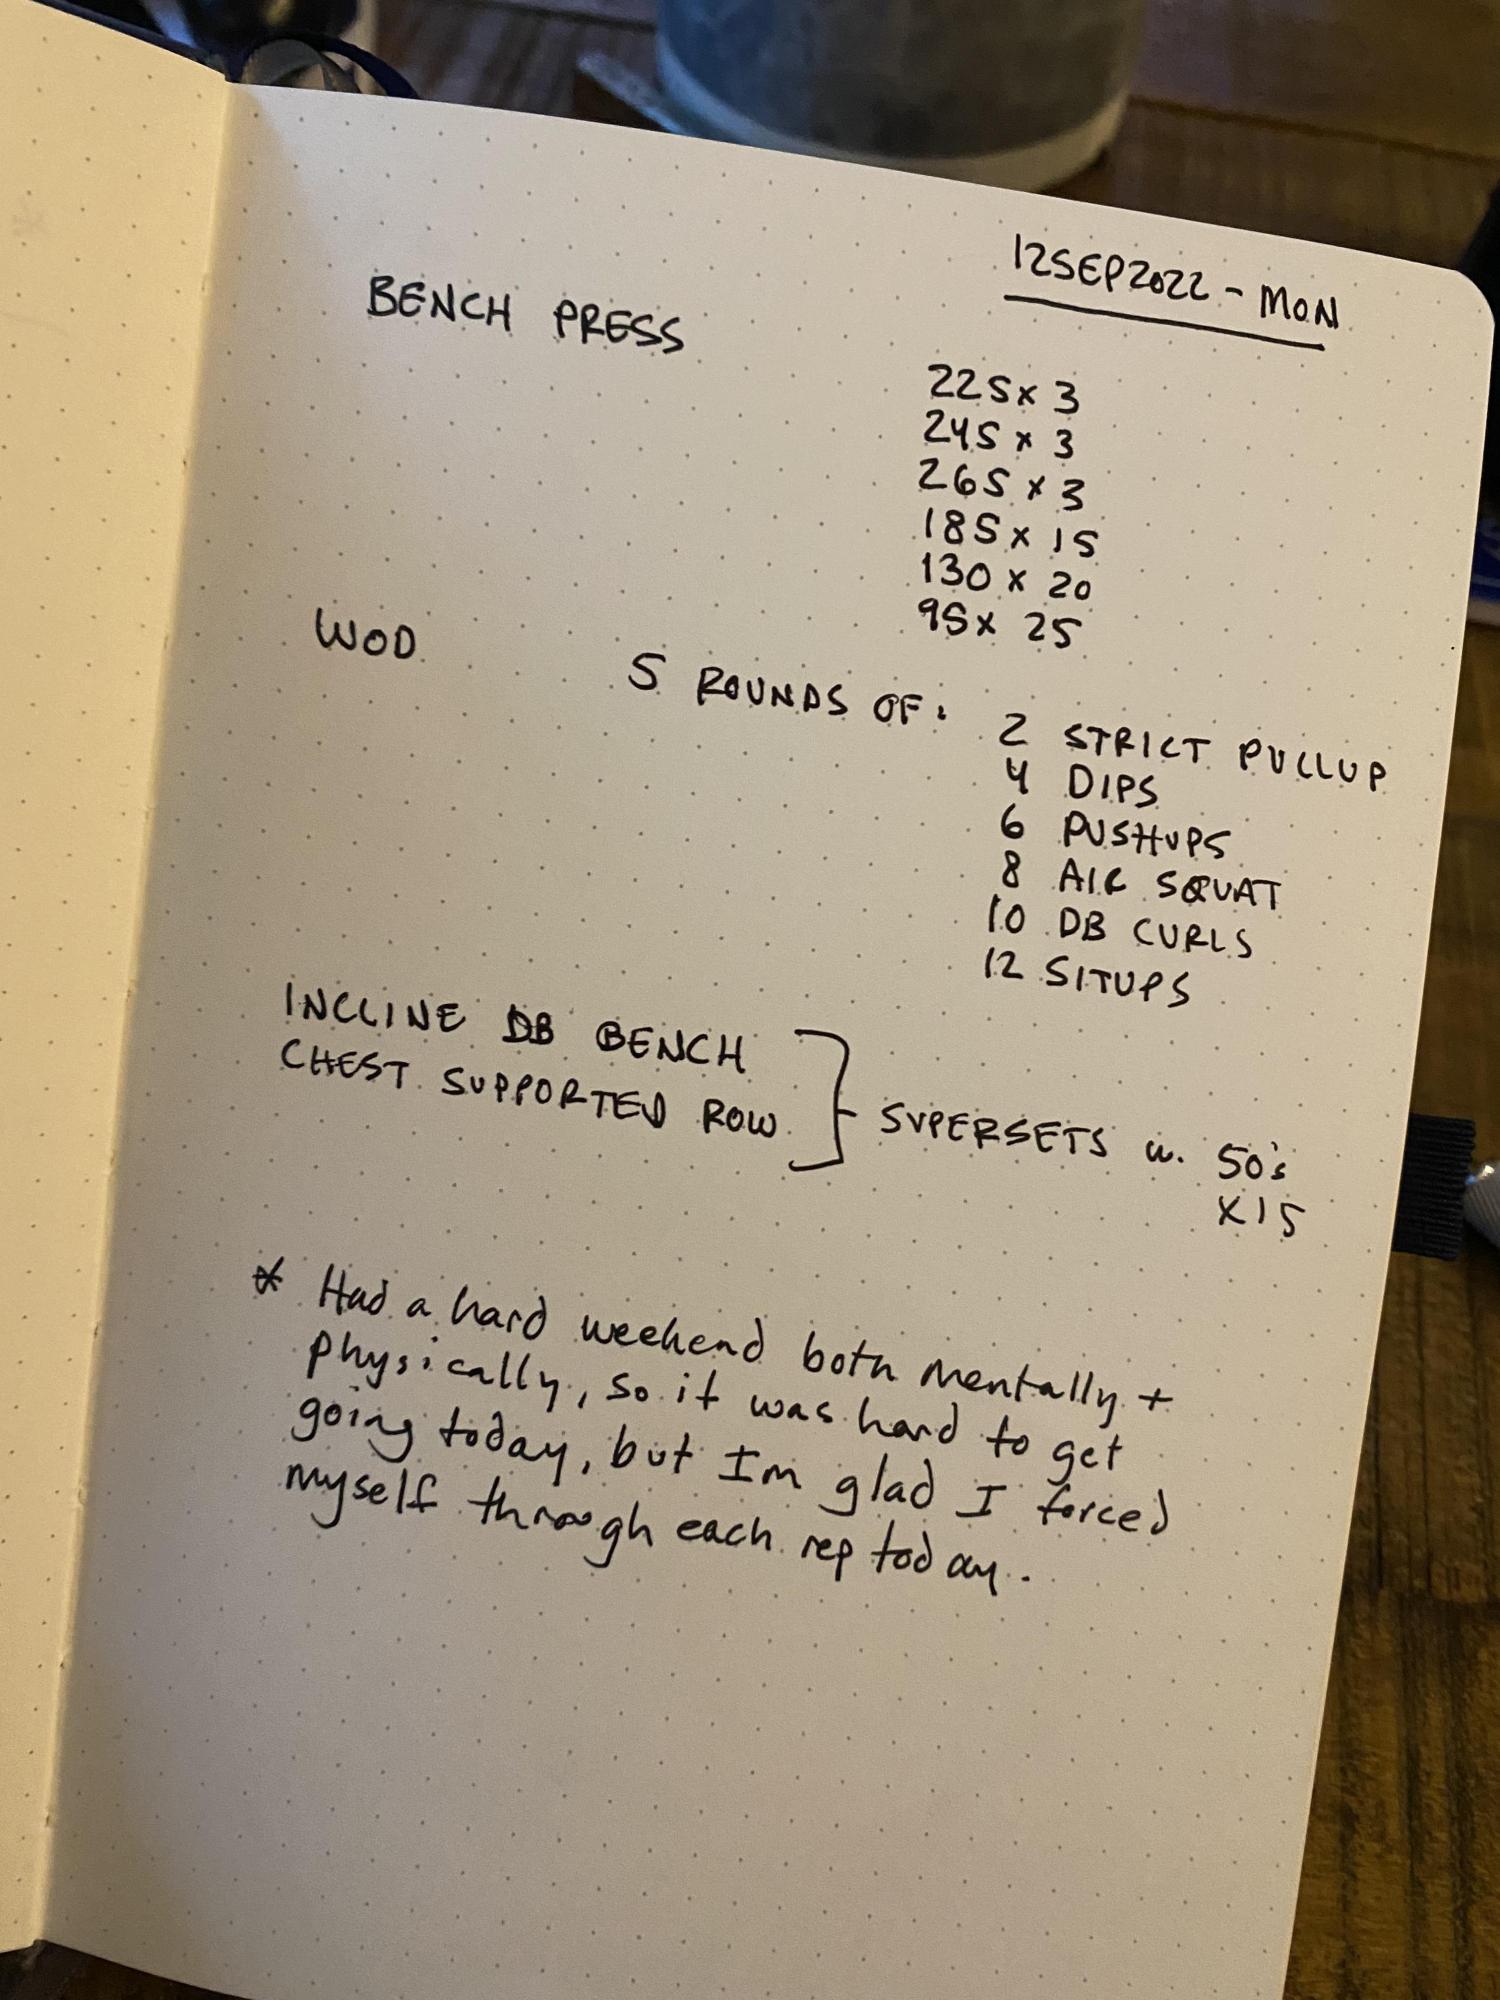 12SEP2022 - MON
BENCH PRESS
225 x 3
245 x 3
265 x 3
185 x 15
130 x 20
95 x 25
WOD
5 ROUNDS OF:
2 STRICT PULLUP
4 DIPS
6 PUSHUPS
8 AIR SQUAT
10 DB CURLS
12 SITUPS
INCLINE DB BENCH
CHEST SUPPORTED ROW
SUPERSETS w. 50's
x 15
* Had a hard weekend both mentally +
physically, so it was hard to get
going today, but Im glad I forced
myself through each rep today.